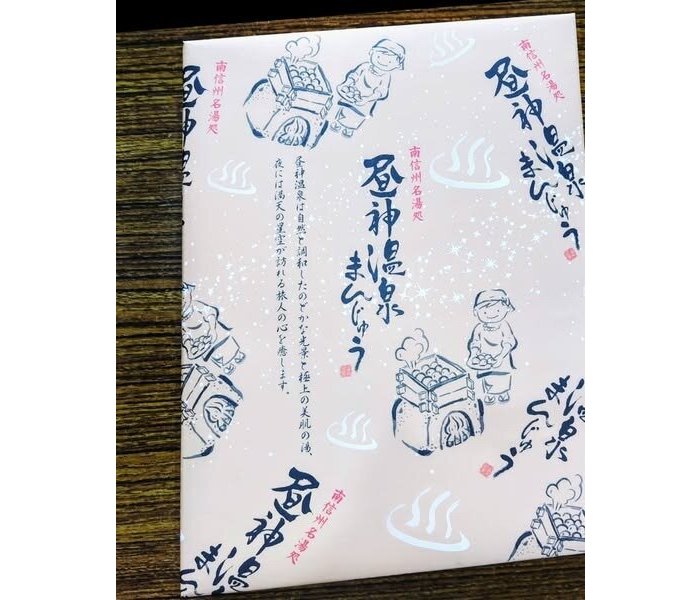 南信州名湯処
昼神温泉
まんじゅう
昼神温泉は自然と調和したのどかな光景と極上の美肌の湯、
夜には満天の星空が訪れる旅人の心を癒します。
南信州名湯処
昼神温泉
まんじゅう
南信州名湯処
昼神温
南信州名湯処
昼神温泉
温泉
まんじゅう